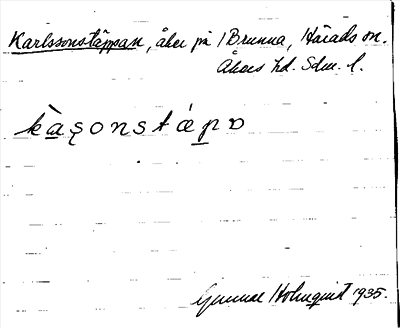 Karlssonstäppan, åker på Brunna, Härads sn.
Åkers hd. Sdm. l.
kàsonstǽpɒ
Gunnar Holmquist 1935.